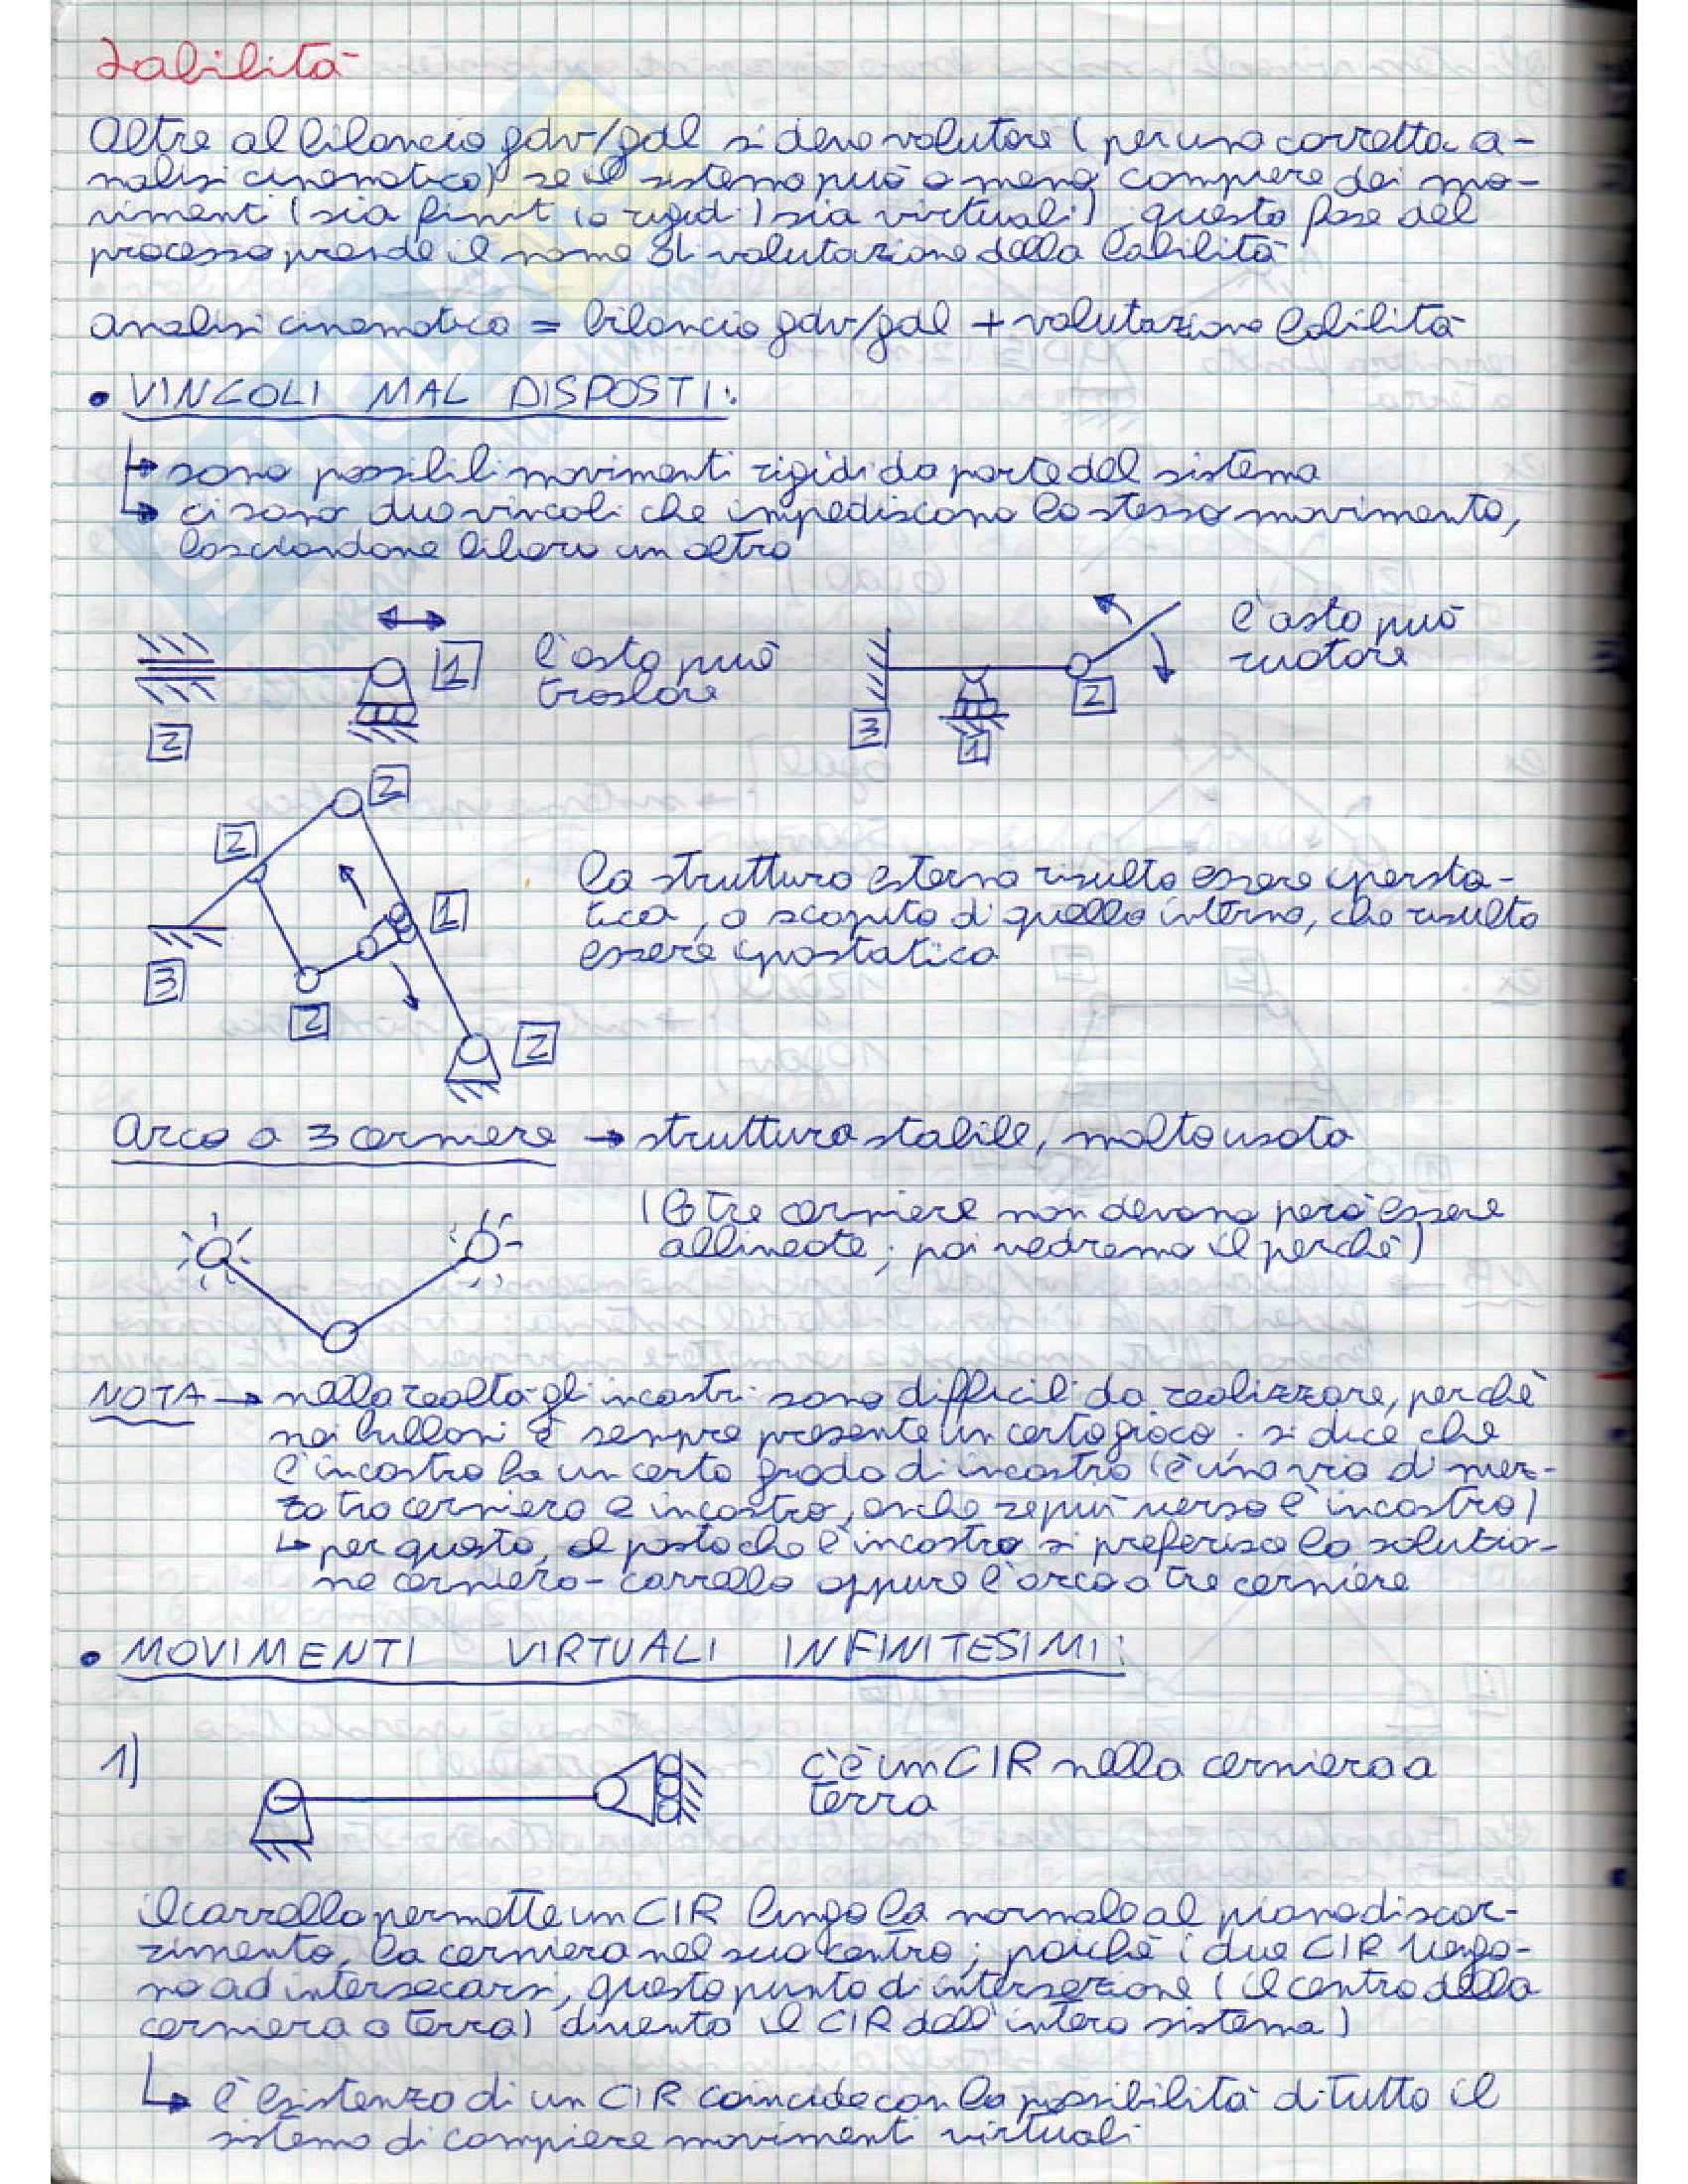 Labilità
Oltre al bilancio gdv/gdl si deve valutare (per una corretta a-
nalisi cinematica) se il sistema può o meno compiere dei mo-
vimenti (sia finiti (o rigidi) sia virtuali); questa fase del
processo prende il nome di valutazione della labilità
analisi cinematica = bilancio gdv/gdl + valutazione labilità
• VINCOLI MAL DISPOSTI:
↳ sono possibili movimenti rigidi da parte del sistema
↳ ci sono due vincoli che impediscono lo stesso movimento,
lasciandone libero un altro
1
l'asta può
traslare
2
l'asta può
ruotare
2
3
1
2
2
1
3
2
2
la struttura esterna risulta essere ipersta-
tica, a scapito di quella interna, che risulta
essere ipostatica
Arco a 3 cerniere → struttura stabile, molto usata
(le tre cerniere non devono però essere
allineate; poi vedremo il perché)
NOTA → nella realtà gli incastri sono difficili da realizzare, perchè
nei bulloni è sempre presente un certo gioco; si dice che
l'incastro ha un certo grado di incastro (è una via di mez-
zo tra cerniera e incastro, anche se più verso l'incastro)
↳ per questo, al posto che l'incastro si preferisce la soluzio-
ne cerniera-carrello oppure l'arco a tre cerniere
• MOVIMENTI VIRTUALI INFINITESIMI:
1)
c'è un CIR nella cerniera a
terra
il carrello permette un CIR lungo la normale al piano di scor-
rimento, la cerniera nel suo centro; poichè i due CIR vengo-
no ad intersecarsi, questo punto di intersezione (il centro della
cerniera a terra) diventa il CIR dell'intero sistema)
↳ l'esistenza di un CIR coincide con la possibilità di tutto il
sistema di compiere movimenti virtuali